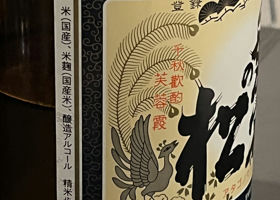 登録
の松
千秋歓酌
芙蓉霞
米(国産)、米麹(国産米)、醸造アルコール 精米歩